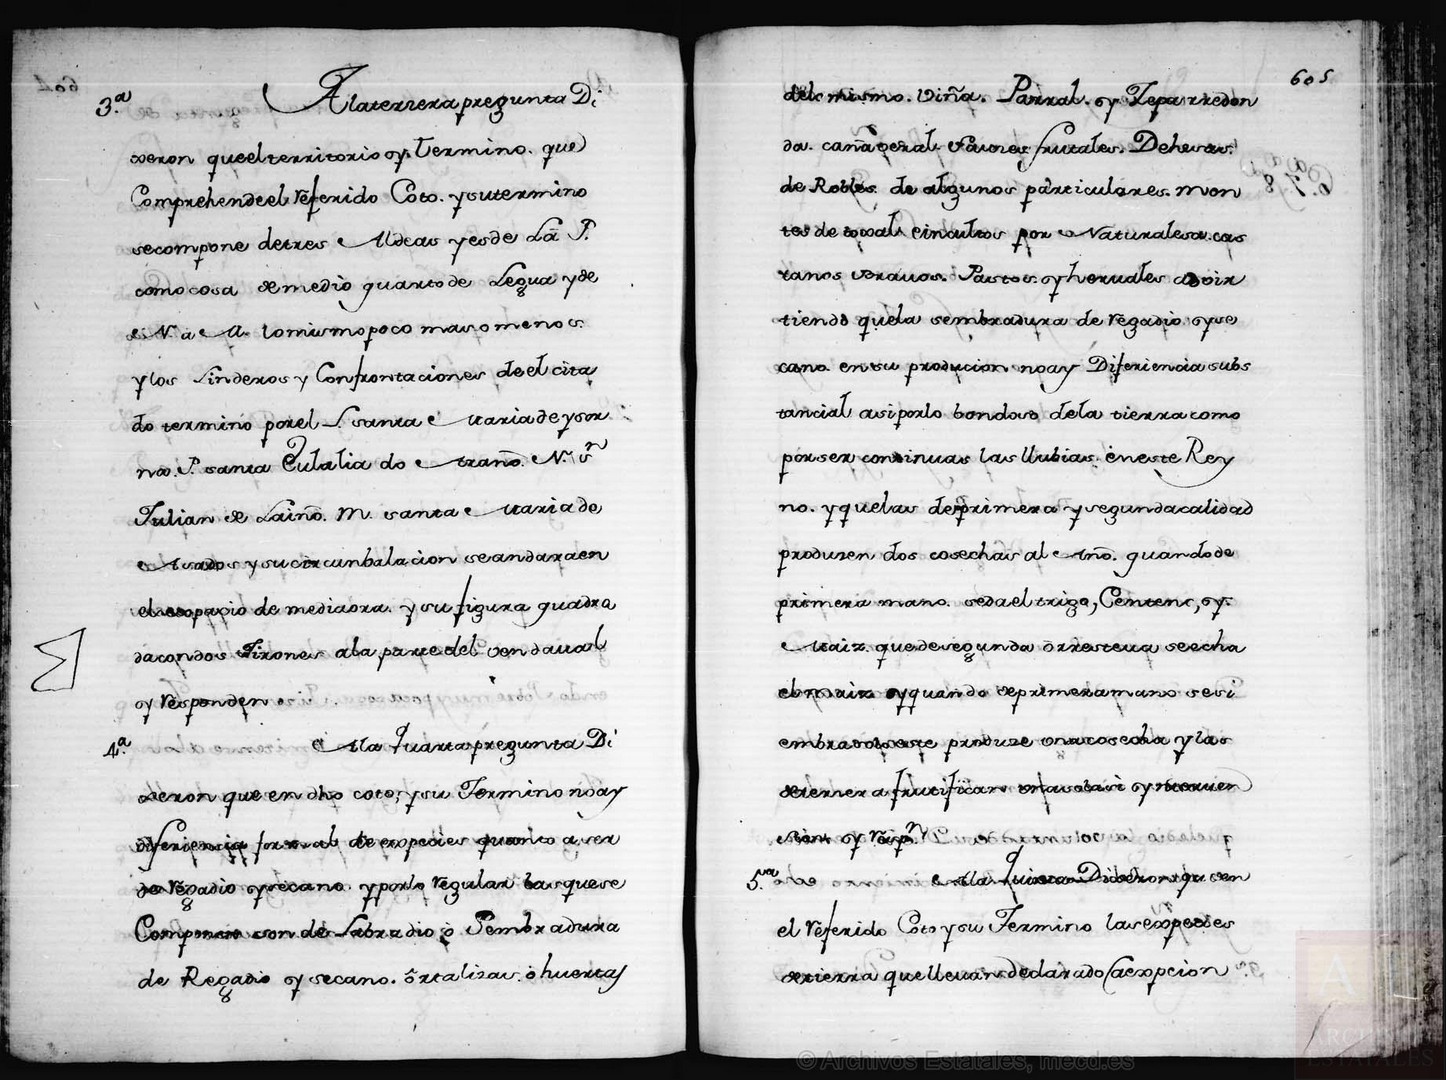 3.ª A la terzera pregunta Di
xeron que el territorio y Termino. que
Comprehende el referido Coto. y su termino
se compone de tres Aldeas y es de La P.
como cosa de medio quarto de Legua y de
N. a M. lo mismo poco mas o menos.
y los Linderos y Confrontaciones de el cita
do termino por el L. santa Maria de ysor
na. P. santa Eulalia do Arano. N. Sn
Julian de Laiño. M. santa Maria de
Asados y su circunbalacion se andara en
el espacio de media ora. y su figura quadra
da con dos Jirones a la parte del vendaual
y Responden
4.ª A la quarta pregunta Di
xeron que en dho coto, y su Termino no ay
Diferiencia formal de expecies quanto a ser
de Regadio y secano. y por lo regular las que se
Componen son de Labradio o Sembradura
de Regadio y secano. ortalizas. o huertas
605
del mismo. Viña. Parral. y Zepa rredon
da. cañaveral frutales. Dehesas.
de Robles. de algunos particulares. Mon
tes de toxal e incultos por Naturaleza. cas
tanos brauos. Pastos. y heruales advir
tiendo que la sembradura de regadio y se
cano. en su producion no ay Diferiencia subs
tancial asi por lo bondoso de la tierra como
por ser continuas las llubias en este Rey
no. y que las de primera y segunda calidad
produzen dos cosechas al Año. quando de
primera mano. se da el trigo, Centeno, y.
Maiz. que de segunda o rresteua se echa
el maiz y quando de primera mano se si
embra solo este produze una cosecha y las
de terzera frutifican
y resp.n
5.ª A la Quinta Dixeron que en
el referido Coto y su Termino las expecies
de tierra que lleuan declarado (a expcion
© Archivos Estatales, mecd.es
ARCHIVOS
ESTATALES